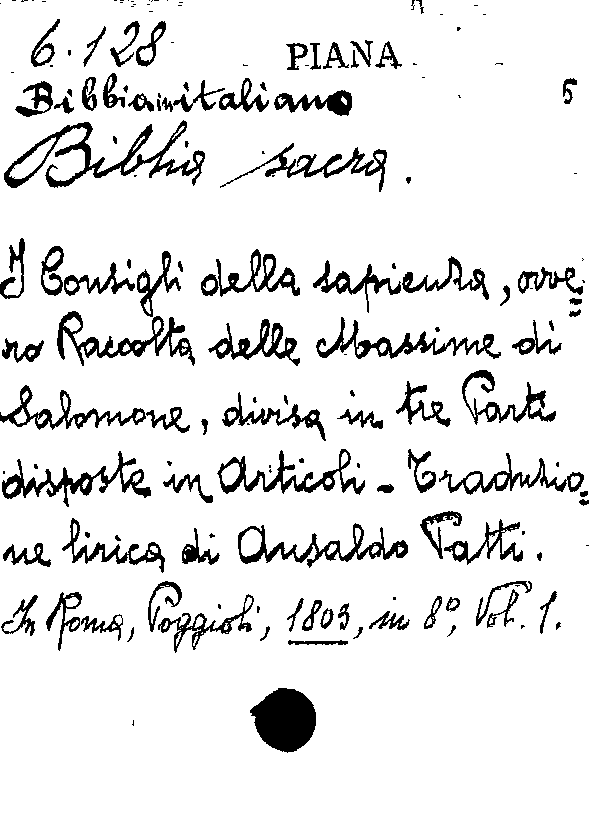 6.128 PIANA
Bibbia in italiano 5
Biblia sacra.
I Consigli della sapienza, ovve=
ro Raccolta delle Massime di
Salomone, divisa in tre Parti
disposte in Articoli - Traduzio=
ne lirica di Ansaldo Fatti.
In Roma, Poggioli, 1803, in 8º, Vol. 1.